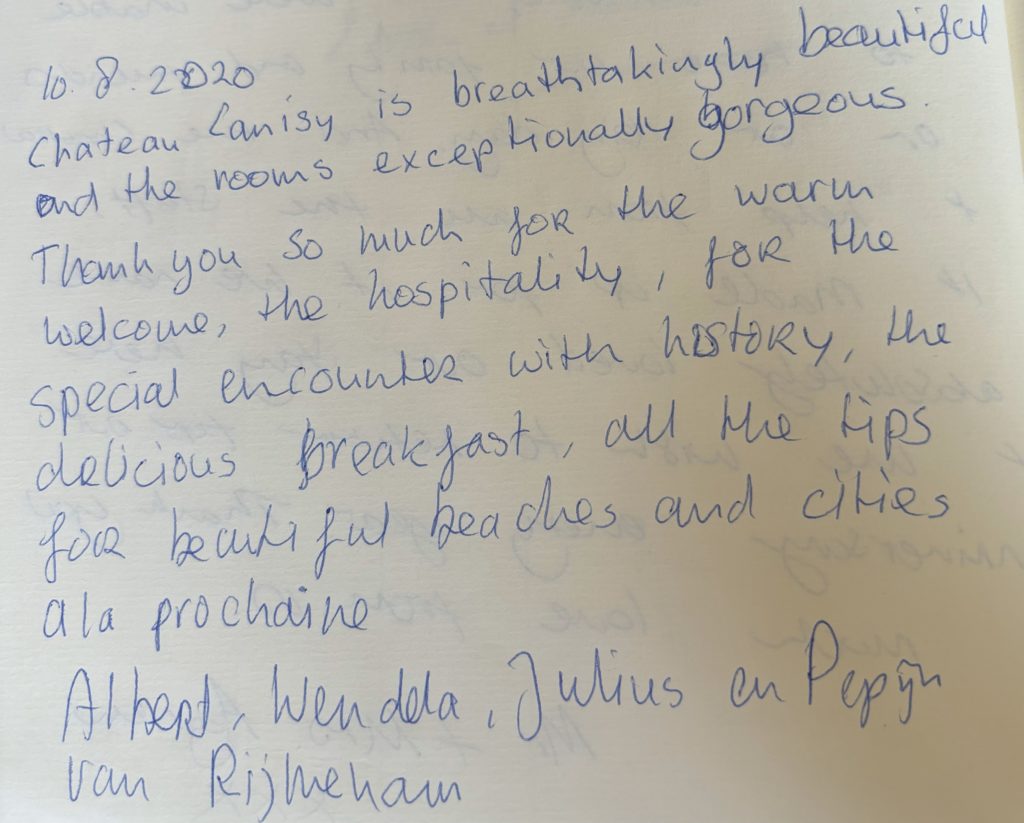 10.8.2020
Chateau Canisy is breathtakingly beautiful
and the rooms exceptionally gorgeous.
Thank you so much for the warm
welcome, the hospitality, for the
special encounter with history, the
delicious breakfast, all the tips
for beautiful beaches and cities
a la prochaine
Albert, Wendela, Julius en Pepijn
van Rijmenam